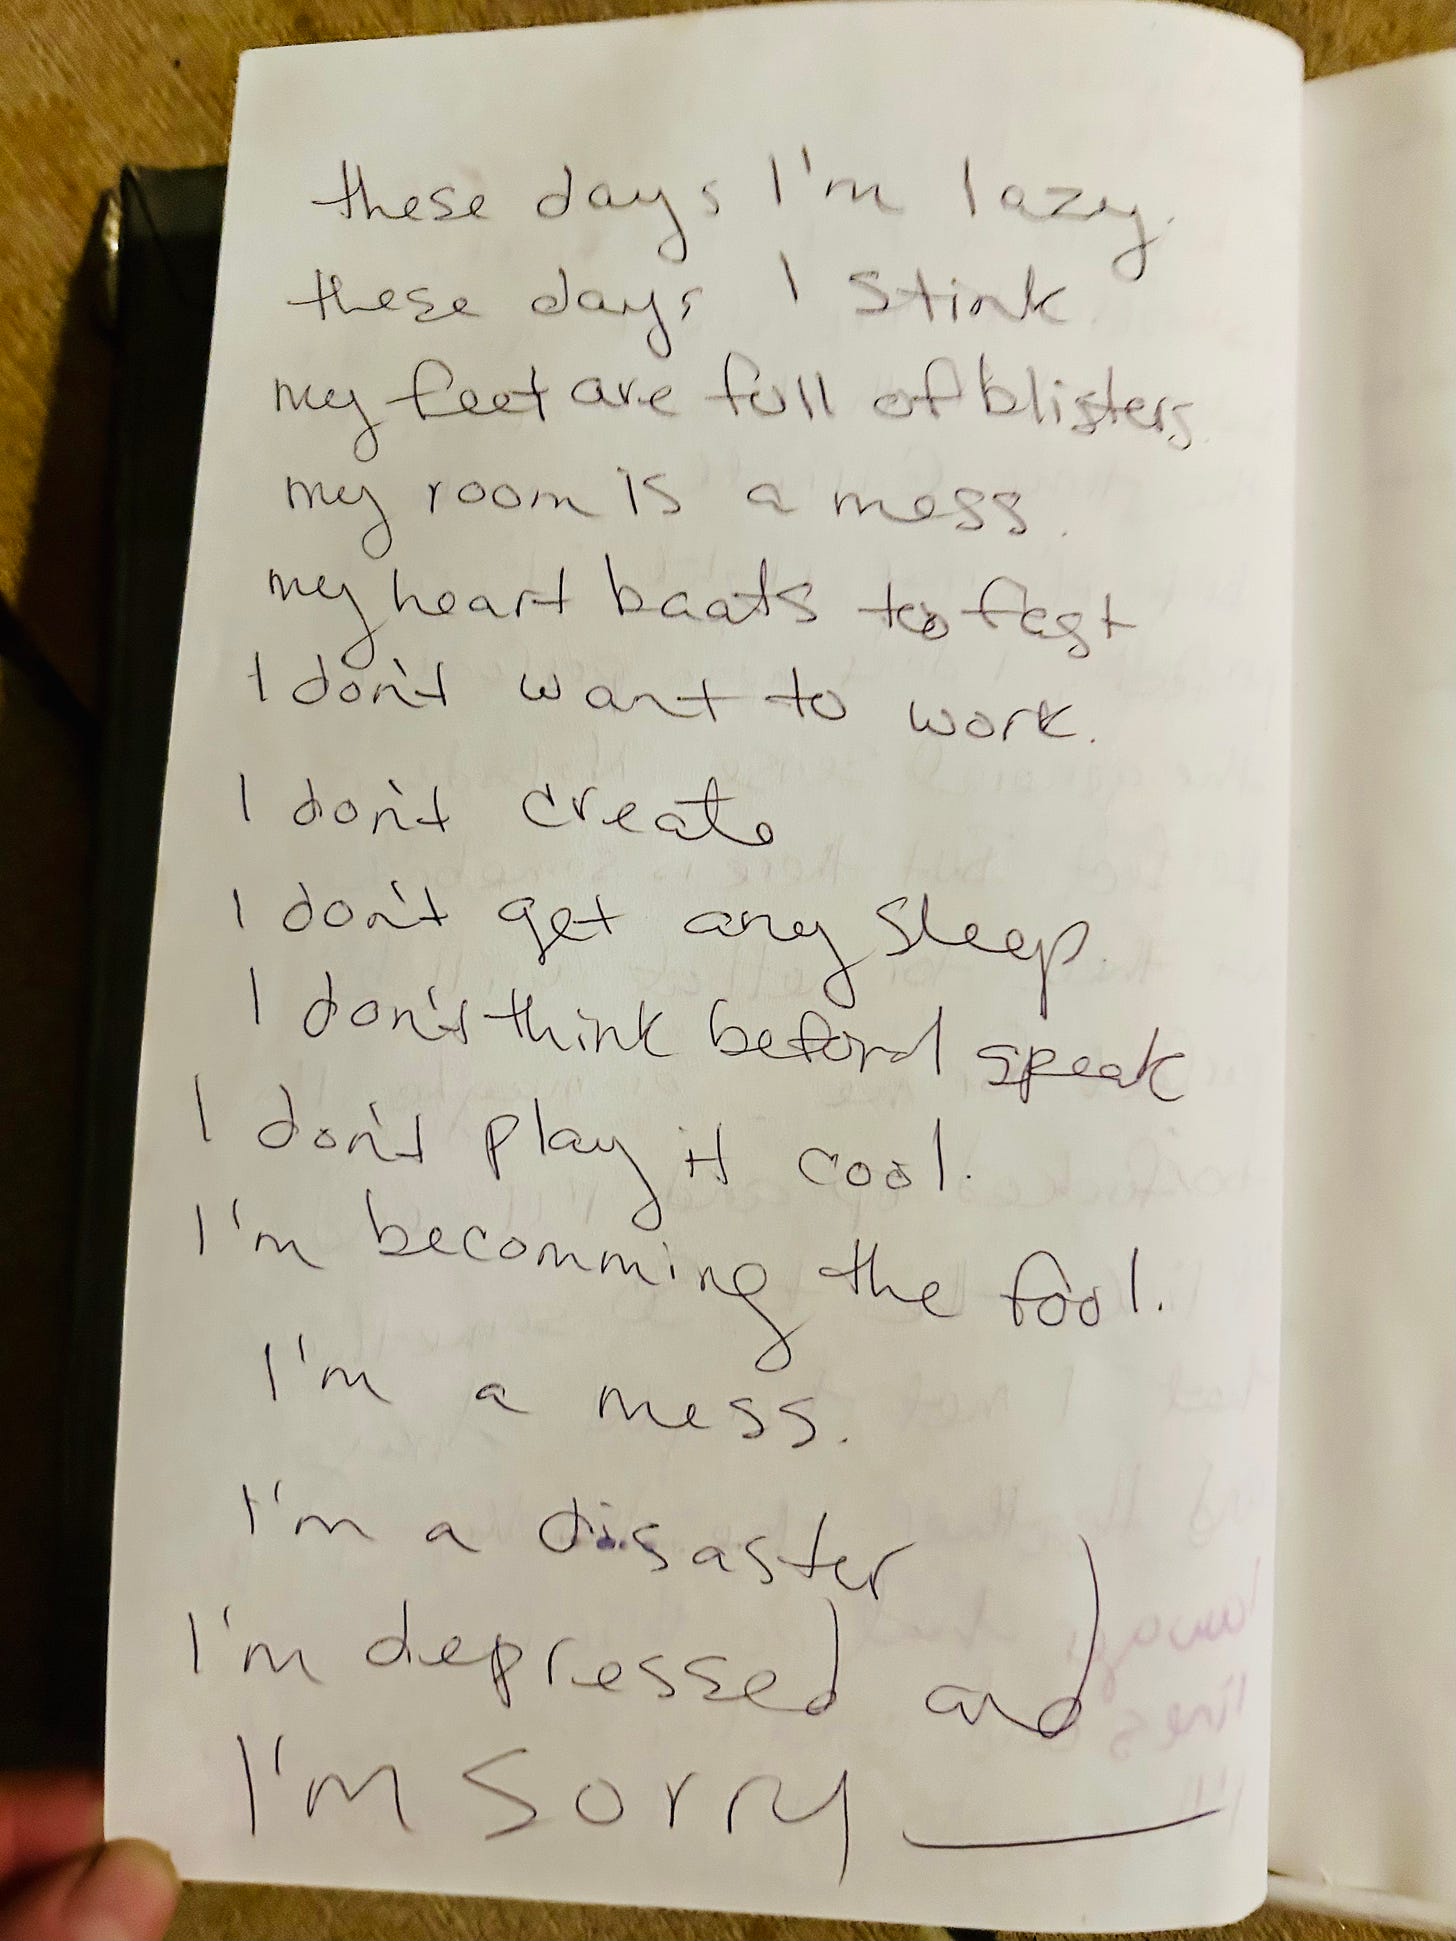 these days I'm lazy.
these days I stink.
my feet are full of blisters.
my room is a mess.
my heart baats too fast
I don't want to work.
I don't create
I don't get any sleep.
I don't think before I speak
I don't play it cool.
I'm becomming the fool.
I'm a mess.
I'm a disaster
I'm depressed and
I'm sorry